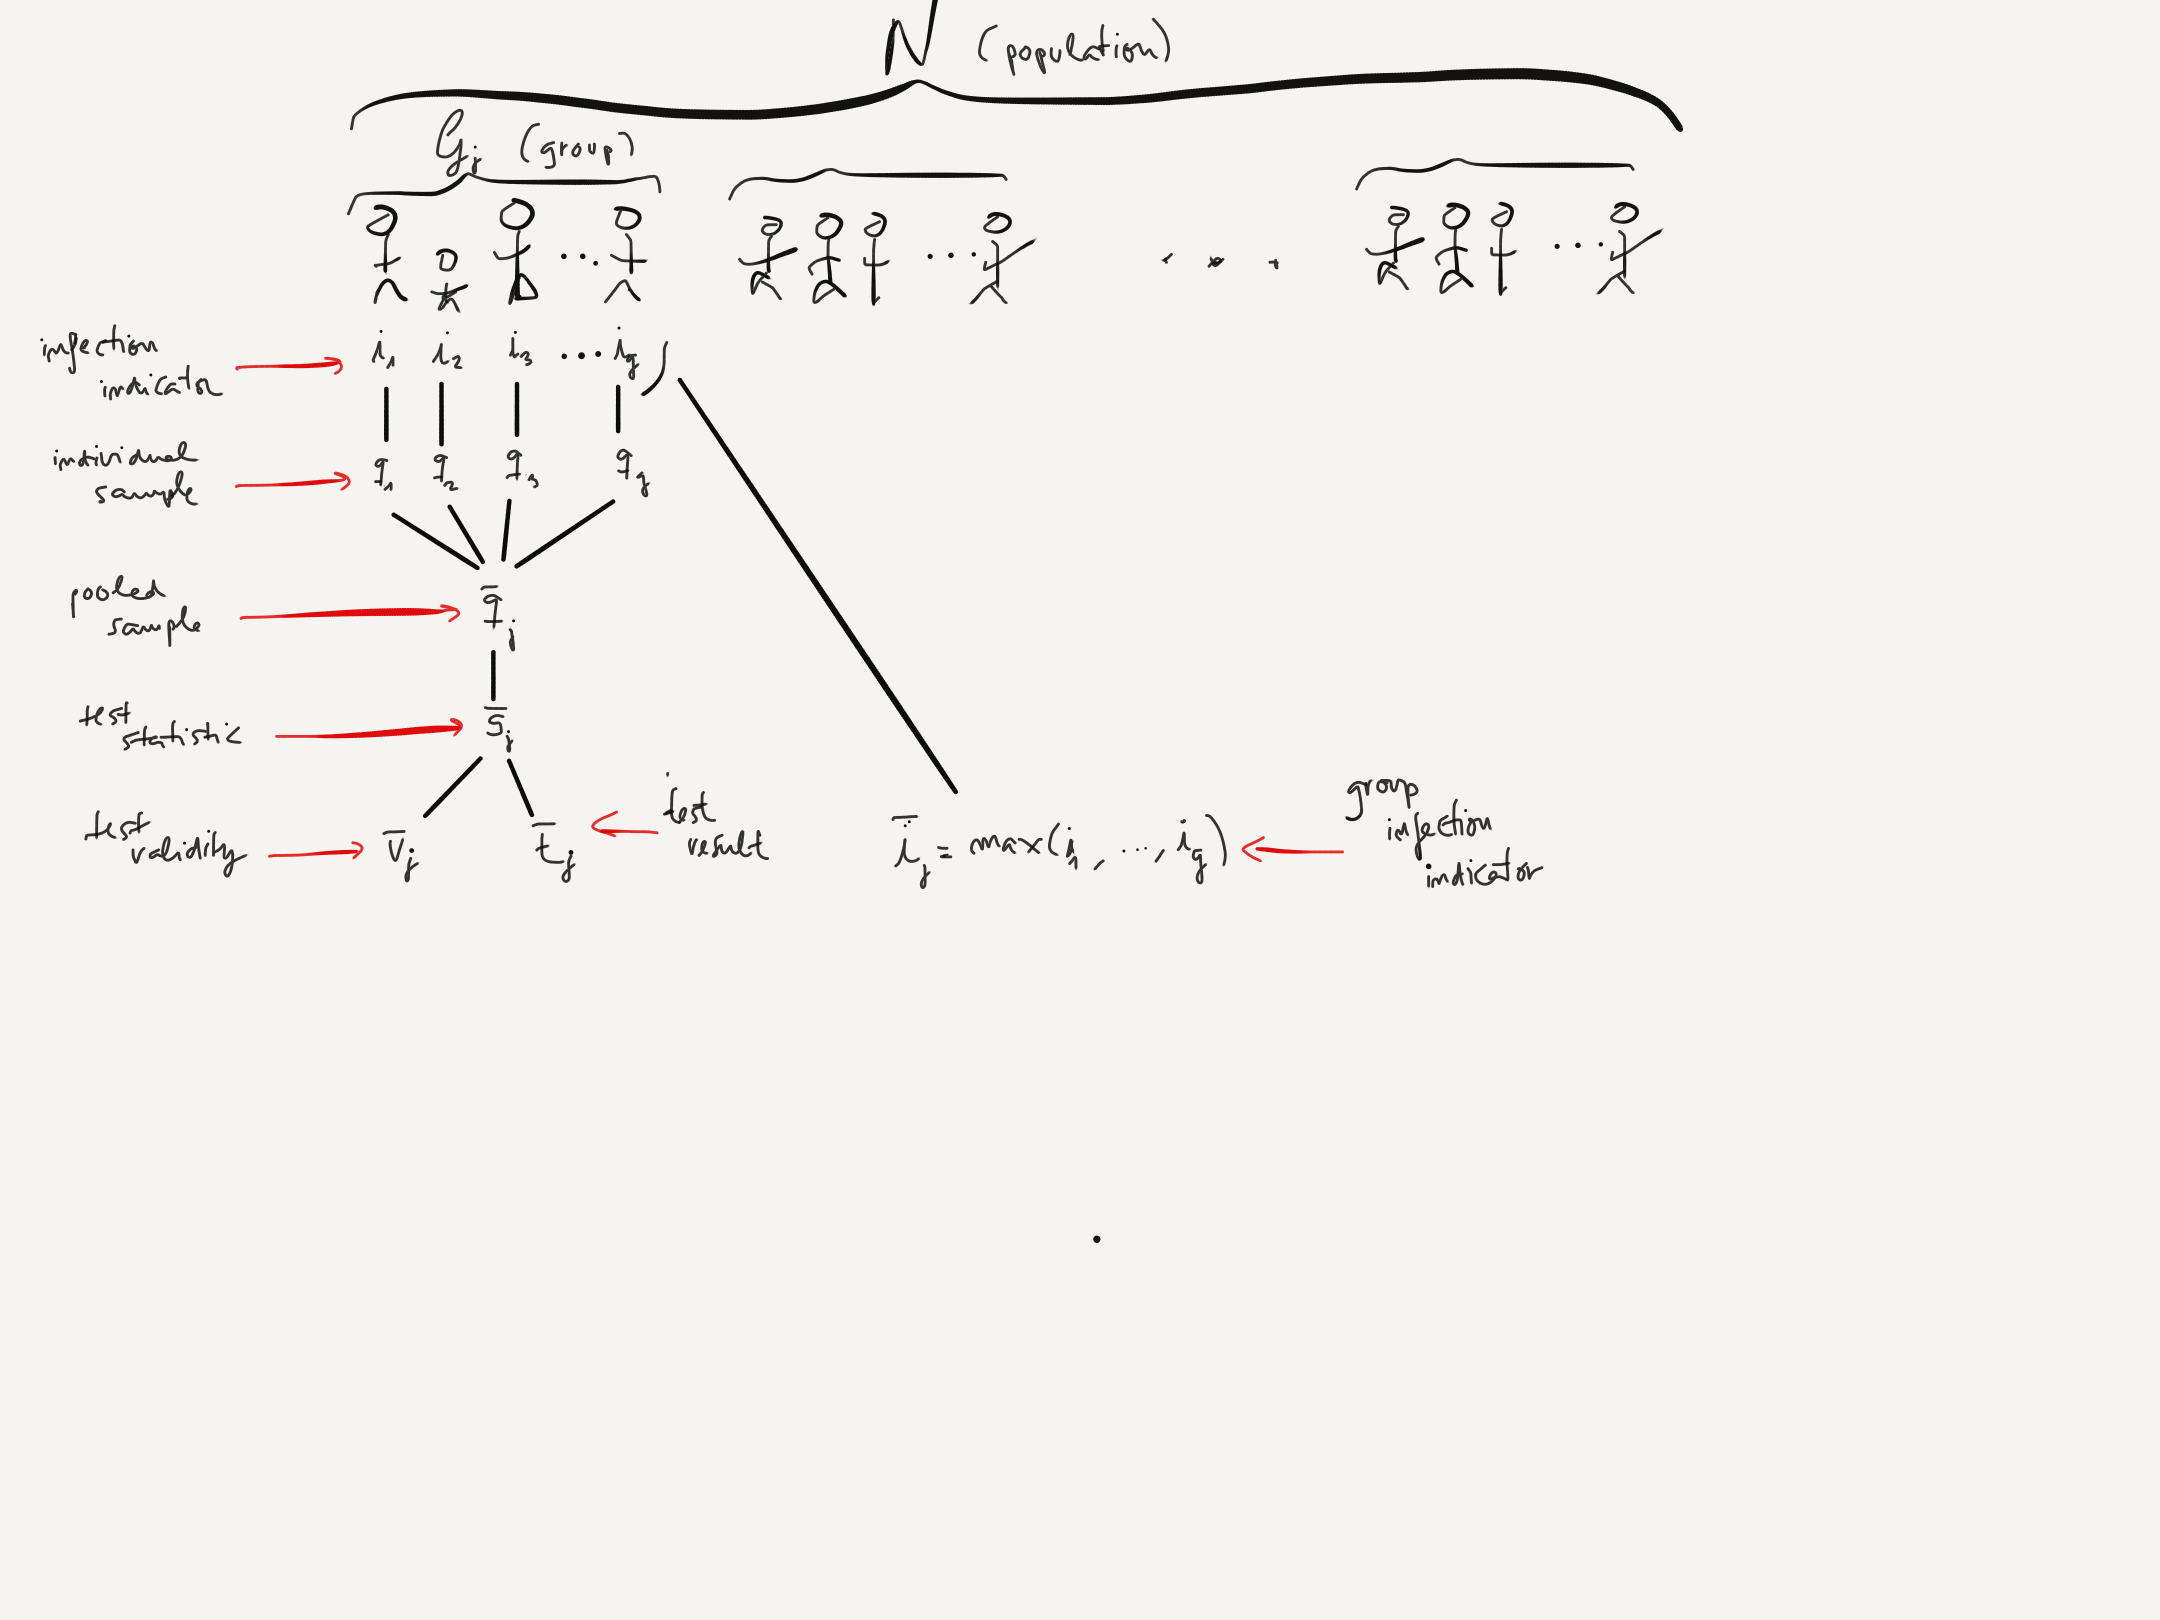 N (population)
G_j (group)
infection
indicator
i_1 i_2 i_3 ... i_g
individual
sample
q_1 q_2 q_3 q_g
pooled
sample
q̄_j
test
statistic
s̄_j
test
validity
v̄_j
t̄_j
test
result
ī_j = max(i_1, ..., i_g)
group
infection
indicator